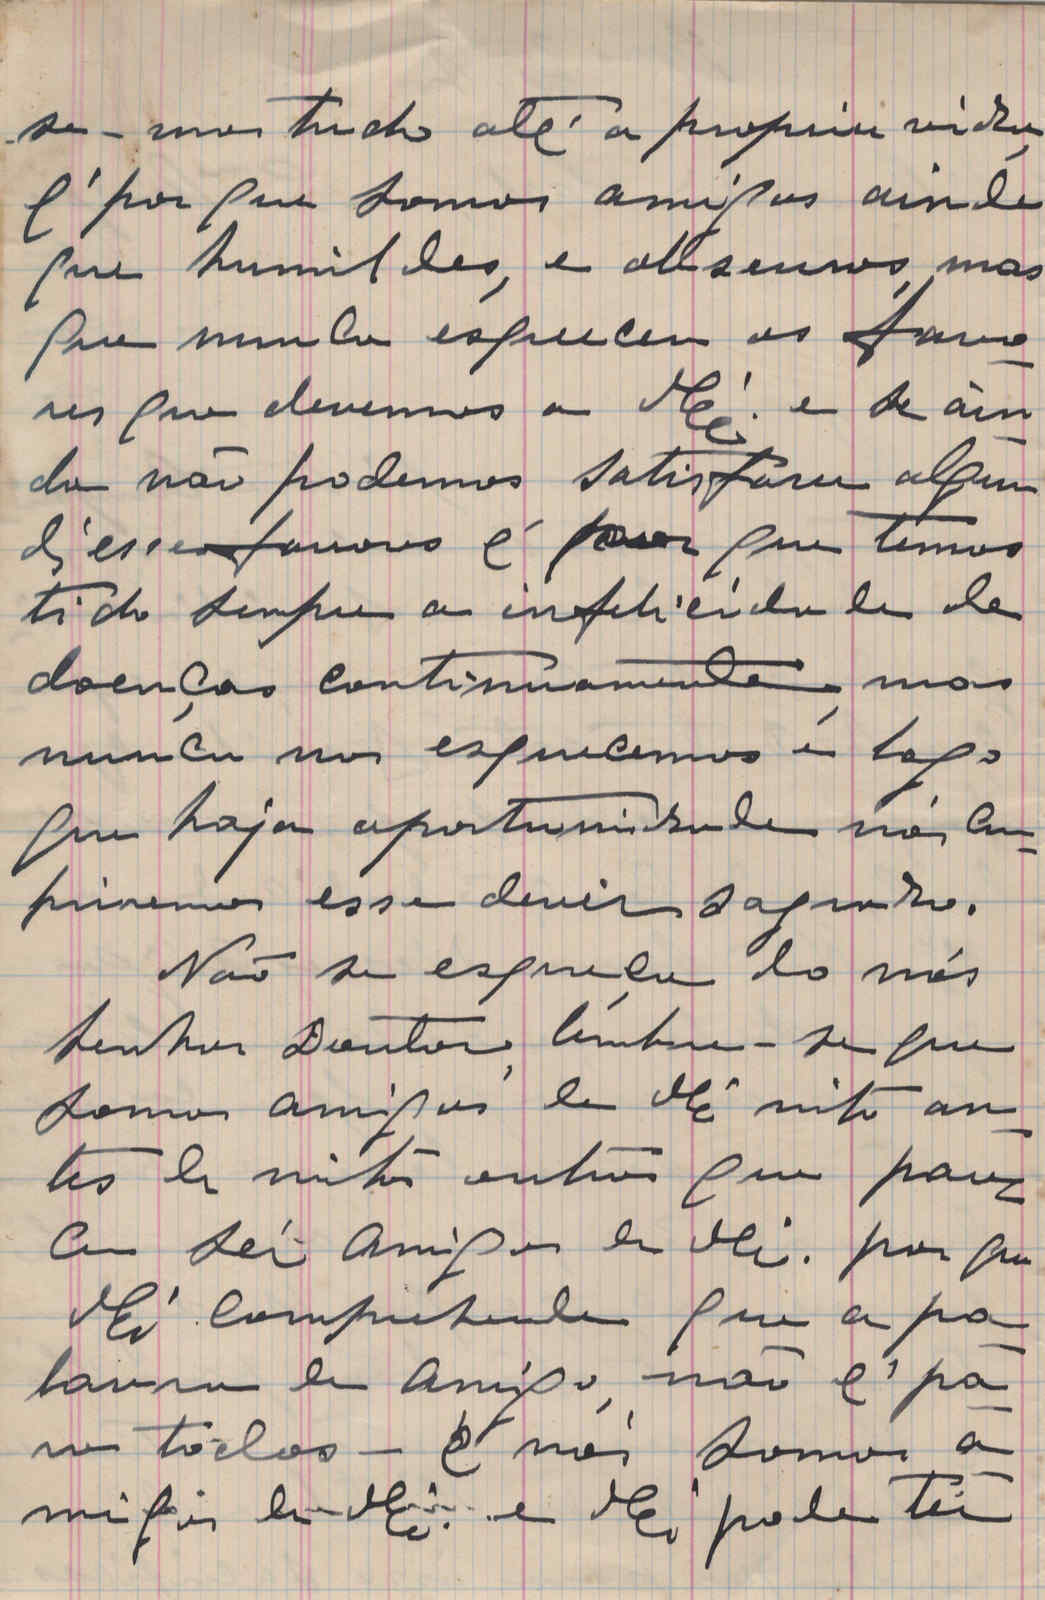 se-mos tudo até a propria vida,
é por que somos amigos ainda
que humildes, e obscuros, mas
que nunca esquecem os favo-
res que devemos a Vcê. e se ain-
da não podemos satisfazer algum
d'esses favores é por que temos
tido sempre a infelicidade de
doenças continuamente, mas
nunca nos esquecemos e logo
que haja aportunidade nós cu-
priremos esse devêr sagrado.
Não se esqueça do nós
Senhor Doutor, lembre-se que
somos amigos de Vcê mito an-
tes de mitos outros que pare-
cem sêr amigos de Vcê. por que
Vcê comprehende que a pa-
lavra de amigo, não é pa-
ra todos - E nós somos a-
migos de Vcê. e Vcê pode têr